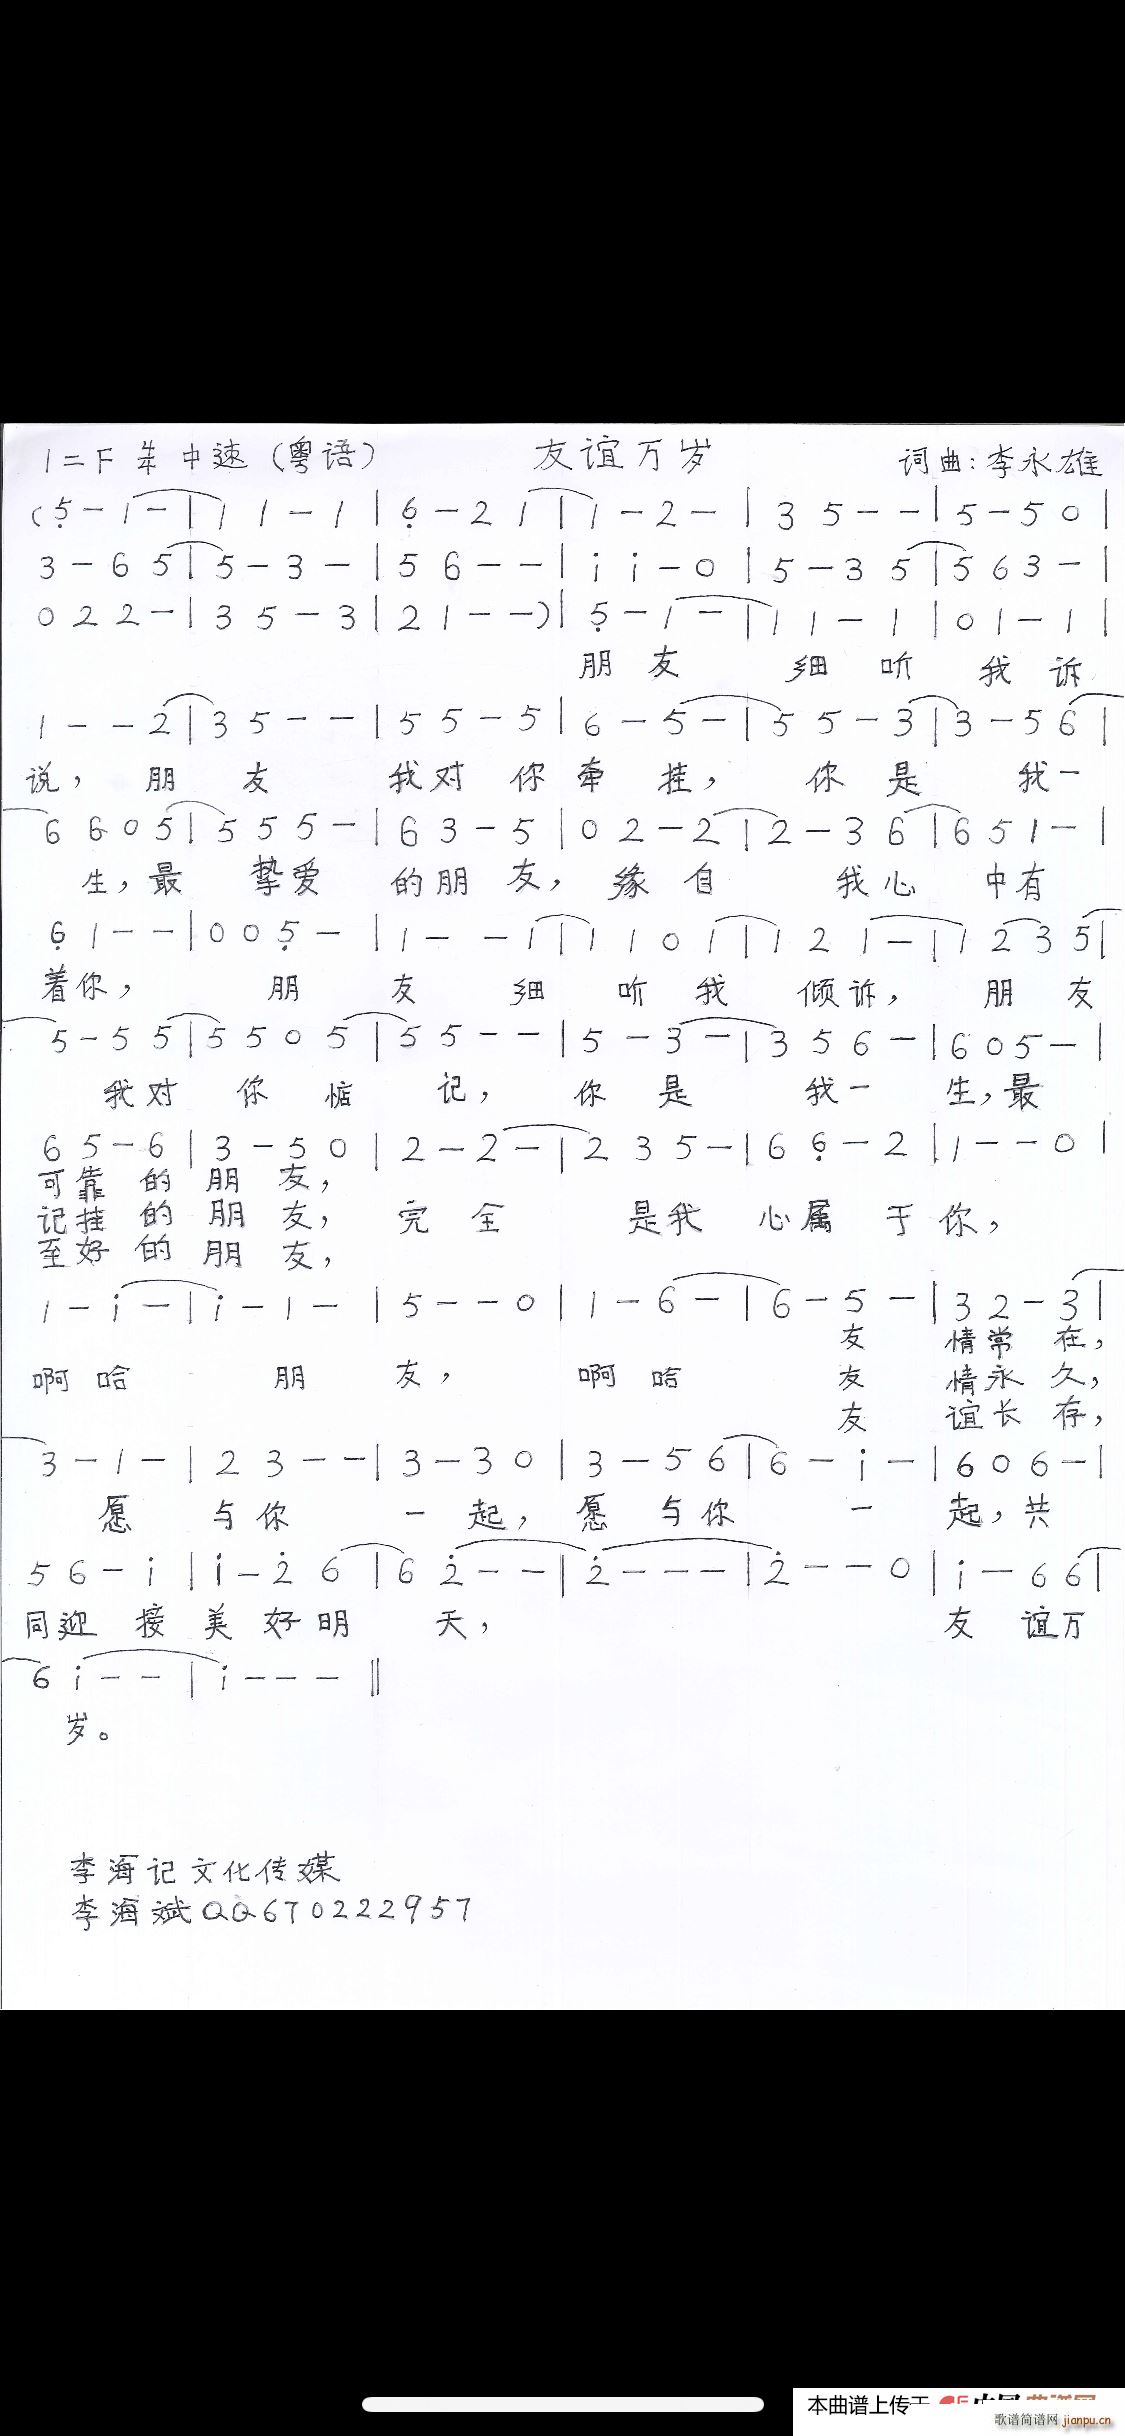 1=F 4/4 中速（粤语） 友谊万岁 词曲：李永雄
(5̣ - 1 - | 1 1 - 1 | 6̣ - 2 1 | 1 - 2 - | 3 5 - - | 5 - 5 0 |
3 - 6 5 | 5 - 3 - | 5 6 - - | i i - 0 | 5 - 3 5 | 5 6 3 - |
0 2 2 - | 3 5 - 3 | 2 1 - - ) | 5̣ - 1 - | 1 1 - 1 | 0 1 - 1 |
朋友 细听 我诉
1 - - 2 | 3 5 - - | 5 5 - 5 | 6 - 5 - | 5 5 - 3 | 3 - 5 6 |
说，朋友 我对你牵挂，你是 我一
6 6 0 5 | 5 5 5 - | 6 3 - 5 | 0 2 - 2 | 2 - 3 6 | 6 5 1 - |
生，最 挚爱 的朋友，缘自 我心 中有
6̣ 1 - - | 0 0 5̣ - | 1 - - 1 | 1 1 0 1 | 1 2 1 - | 1 2 3 5 |
着你， 朋 友 细 听我 倾诉， 朋友
5 - 5 5 | 5 5 0 5 | 5 5 - - | 5 - 3 - | 3 5 6 - | 6 0 5 - |
我对 你惦 记， 你是 我一 生，最
6 5 - 6 | 3 - 5 0 | 2 - 2 - | 2 3 5 - | 6 6̣ - 2 | 1 - - 0 |
可靠的朋友，
记挂的朋友，完全 是我 心属于你，
至好的朋友，
1 - i - | i - 1 - | 5 - - 0 | 1 - 6 - | 6 - 5 - | 3 2 - 3 |
友 情常在，
啊哈 朋 友， 啊哈 友 情永久，
友 谊长存，
3 - 1 - | 2 3 - - | 3 - 3 0 | 3 - 5 6 | 6 - i - | 6 0 6 - |
愿 与你 一起，愿与你 一 起，共
5 6 - i | i - 2̇ 6 | 6 2̇ - - | 2̇ - - - | 2̇ - - 0 | i - 6 6 |
同迎接美好明 天， 友谊万
6 i - - | i - - - ‖
岁。
李海记文化传媒
李海斌QQ670222957
本曲谱上传于
歌谱简谱网 jianpu.cn